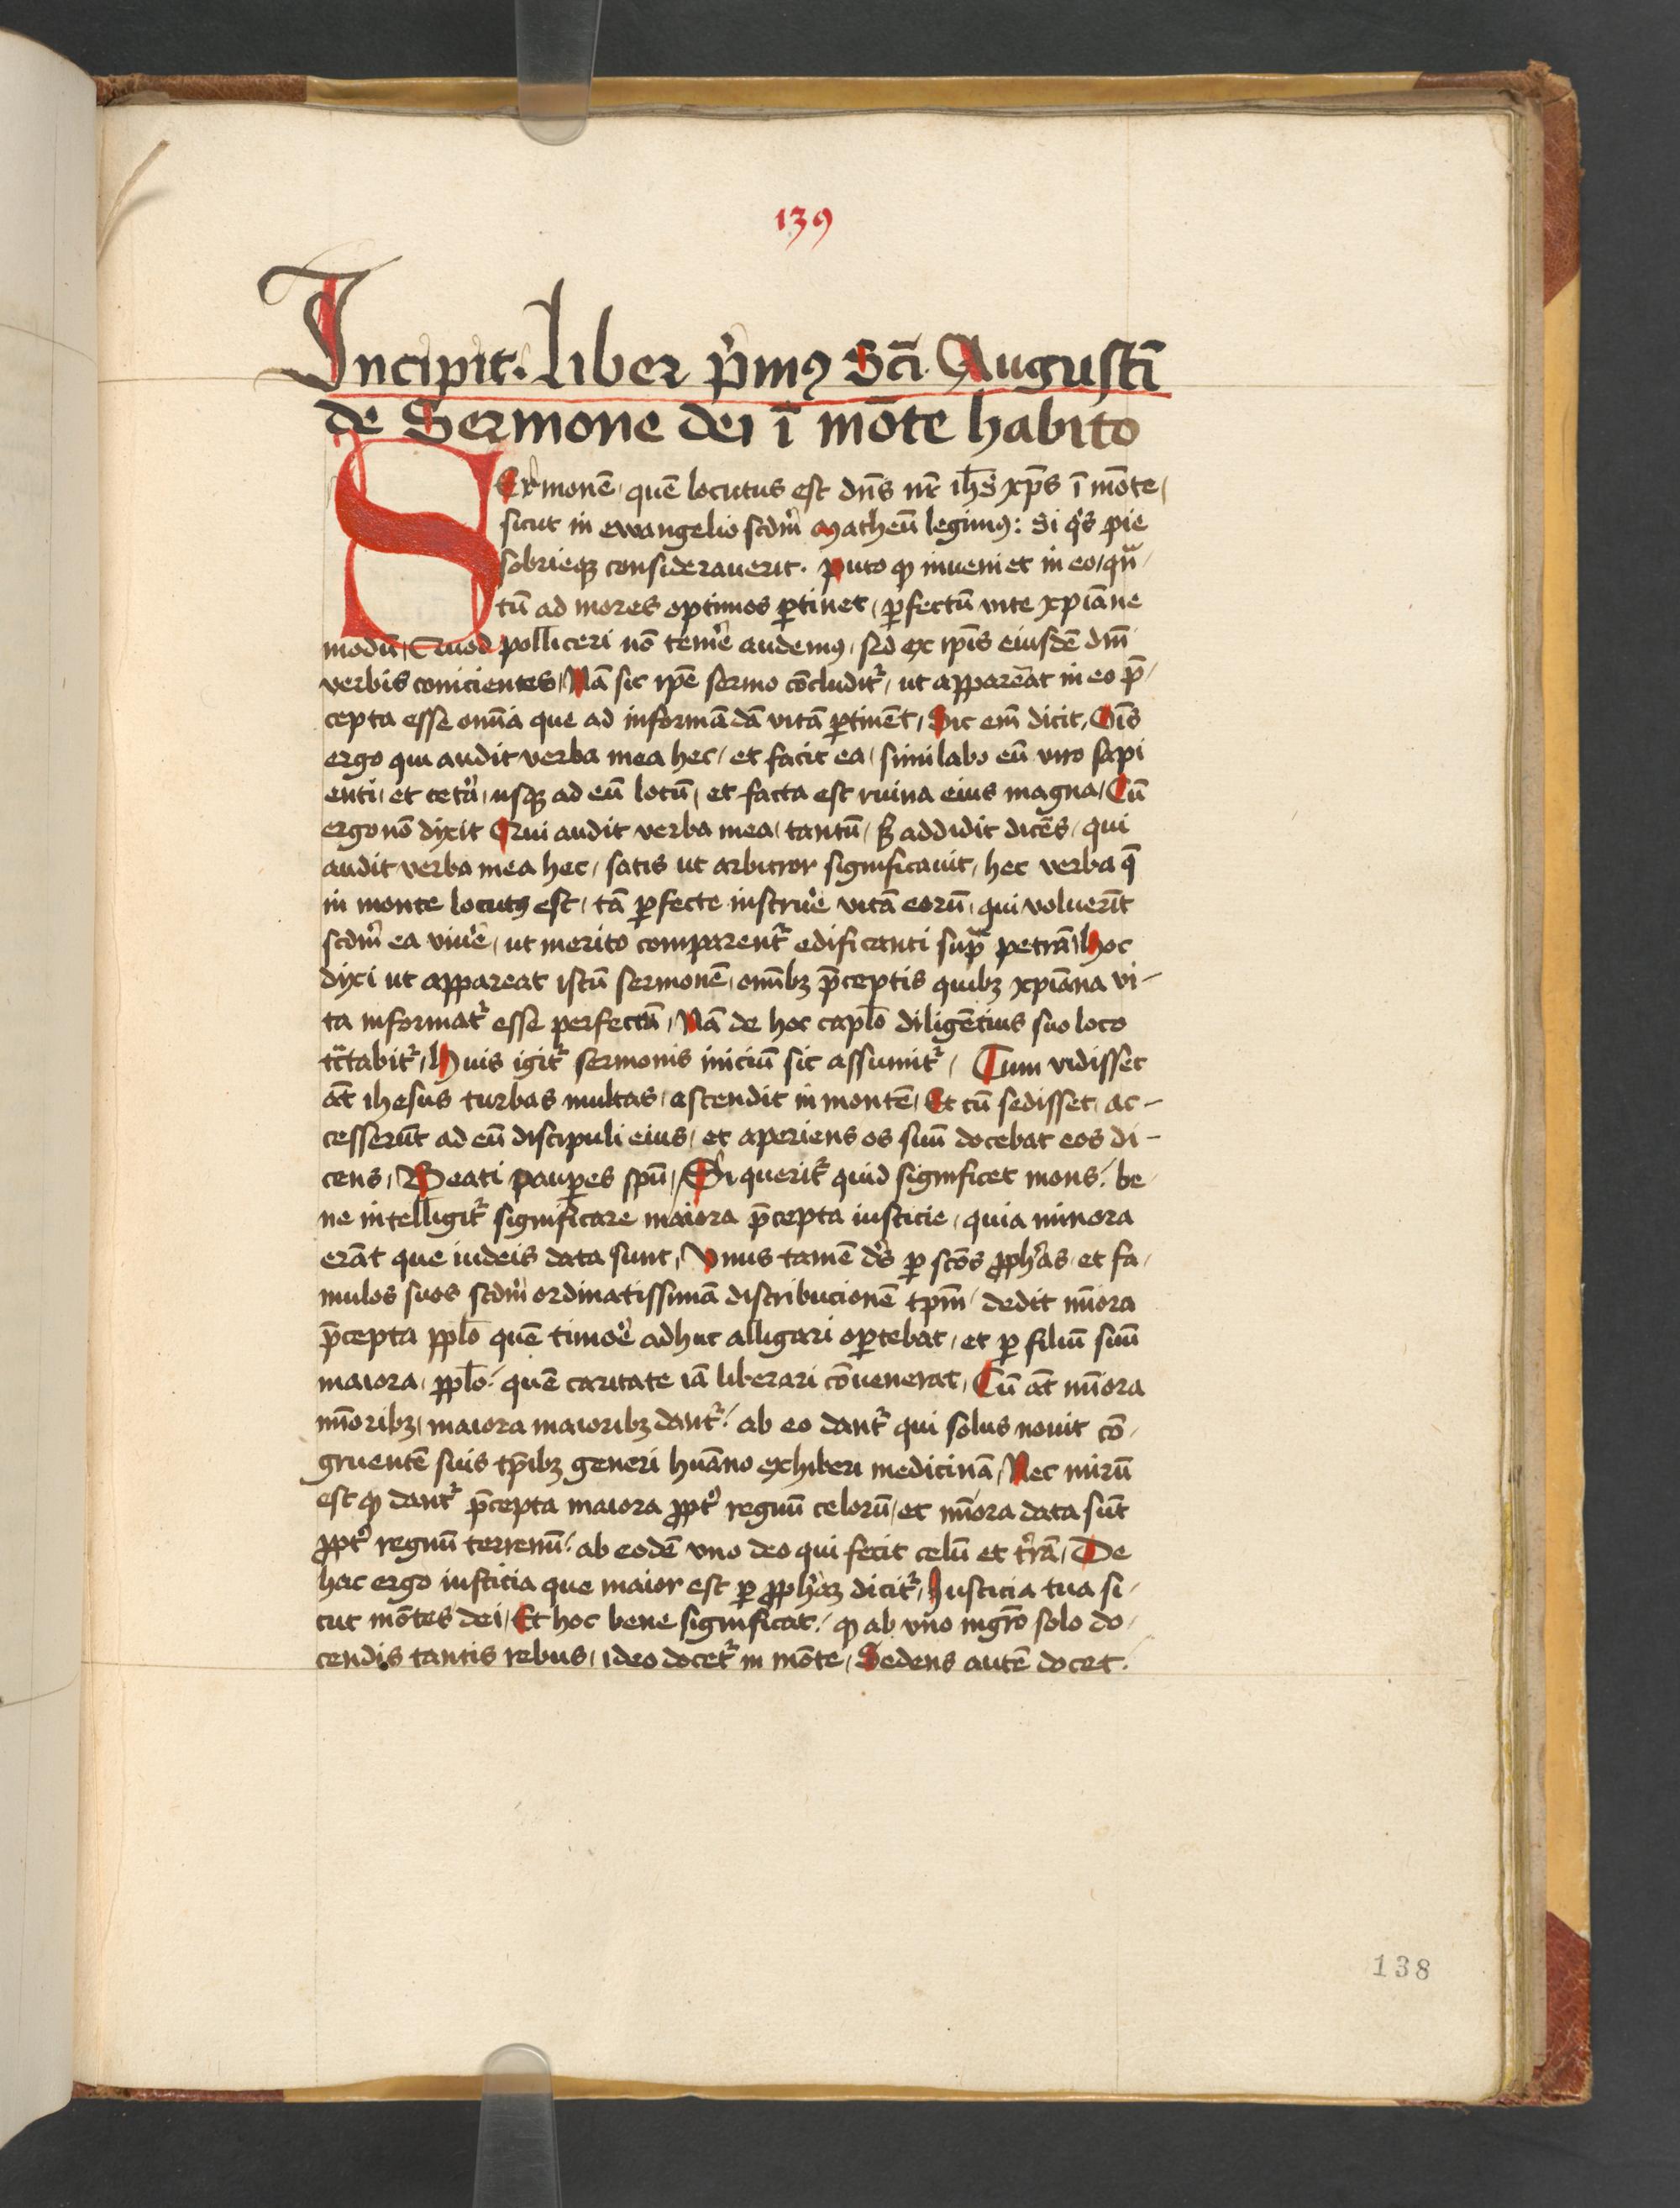 139
Incipit. liber p̓mꝰ Scī. Augustī
de Sermone dei ī mōte habito
SEr̓monē, quē locutus est dn̄s nr̄ ih̄s xp̄s ī mōte,
sicut in ewangelio scdm̓ Matheū legimꝰ: Si q̓s pie
sobrieqꝫ considerauerit. puto ꝙ inueniet in eo, qn̄
tū ad mores optimos ꝑtinet, ꝑfectū vite xp̄iane
modū, Quod polliceri nō teme̓ audemꝰ, sꝫ ex ip̄is eiusdē dn̄i
verbis conicientes, Nā sic ip̄e sermo cōcludit᷑, ut appareāt in eo p̄
cepta esse om̄ia que ad informādā vitā ꝑtinēt, Sic em̄ dicit, Oīs
ergo qui audit verba mea hec, et facit ea, similabo eū viro sapi
enti, et cete̓a, usqꝫ ad eū locū, et facta est ruina eius magna, Cū
ergo nō dixit Qui audit verba mea, tantū, sꝫ addidit dicēs, qui
audit verba mea hec, satis ut arbitror significauit, hec verba q̄
in monte locutꝰ est, tā ꝑfecte instrue̓ vitā eorū, qui voluerīt
scdm̓ ea viue̓, ut merito comparent᷑ edificanti supᵃ petrā, Hoc
dixi ut appareat istū sermonē, om̄ibꝫ p̄ceptis quibꝫ xp̄iana vi-
ta informat᷑ esse perfectū, Nā de hoc caplō diligētius suo loco
tᵃctabit᷑, Huis igit᷑ sermonis iniciū sic assumit᷑, Cum vidisset
āt ihesus turbas multas, ascendit in montē, Et cū sedisset, ac-
cesserūt ad eū discipuli eius, et aperiens os suū docebat eos di-
cens, Beati pauꝑes spū, Si querit᷑ quid significet mons, be
ne intelligit᷑ significare maiora p̄cepta iusticie, quia minora
erāt que iudeis data sunt, Vnus tamē de̓s ꝑ scōs ꝓph̓as, et fa,
mulos suos scdm̓ ordinatissimā distribucionē tp̄m, dedit mīora
p̄cepta pp̄lo quē timoe̓ adhuc alligari oꝑtebat, et ꝑ filiū suū
maiora, pp̄lo, quē caritate iā liberari cōuenerat, Cū āt mīora
mīoribꝫ, maiora maioribꝫ dant᷑, ab eo dant᷑ qui solus nouit cō,
gruentē suis tp̄ibꝫ generi hūano exhiberi medicinā, Nec mirū
est ꝙ dant᷑ p̄cepta maiora ꝓpt̓ regnū celorū, et mīora data sūt
ꝓpt̓ regnū terrenū, ab eodē vno deo qui fecit celū et t̓rā, De
hac ergo iusticia que maior est ꝑ ꝓph̓aꝫ dicit᷑, Iusticia tua si,
cut mōtes dei, Et hoc bene significat, ꝙ ab vno mgr̄o solo do,
cendis tantis rebus, ideo docet᷑ in mōte, Sedens autē docet.
138